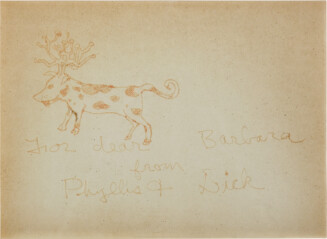 For dear Barbara
from
Phyllis & Dick